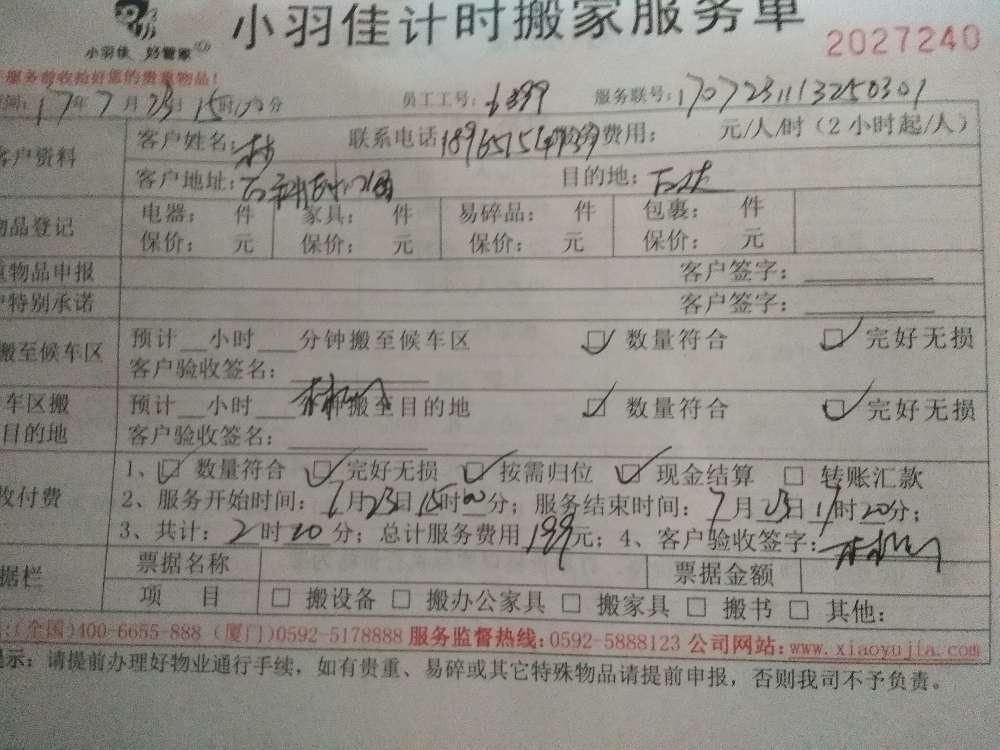 小羽佳计时搬家服务单
小羽佳 好管家
2027240
服务前收拾好您的贵重物品!
时间: 17年7月23日15时00分 员工工号: 服务联号: 1707231113250301
客户资料 客户姓名: 林 联系电话 服务费用: 元/人/时 (2小时起/人)
客户地址: 目的地:
物品登记 电器: 件 家具: 件 易碎品: 件 包裹: 件
保价: 元 保价: 元 保价: 元 保价: 元
重物品申报 客户签字:
户特别承诺 客户签字:
搬至候车区 预计__小时___分钟搬至候车区 ☑ 数量符合 ☑ 完好无损
客户验收签名:
车区搬 预计__小时 搬至目的地 ☑ 数量符合 ☑ 完好无损
目的地 客户验收签名:
收付费 1、☑ 数量符合 ☑ 完好无损 ☑ 按需归位 ☑ 现金结算 □ 转账汇款
2、服务开始时间: 月23日15时00分; 服务结束时间: 7月23日17时20分;
3、共计: 2时20分; 总计服务费用199元; 4、客户验收签字:
据栏 票据名称 票据金额
项 目 □ 搬设备 □ 搬办公家具 □ 搬家具 □ 搬书 □ 其他:
:(全国)400-6655-888 (厦门)0592-5178888 服务监督热线:0592-5888123 公司网站:www.xiaoyujia.com
提示: 请提前办理好物业通行手续, 如有贵重、易碎或其它特殊物品请提前申报, 否则我司不予负责。